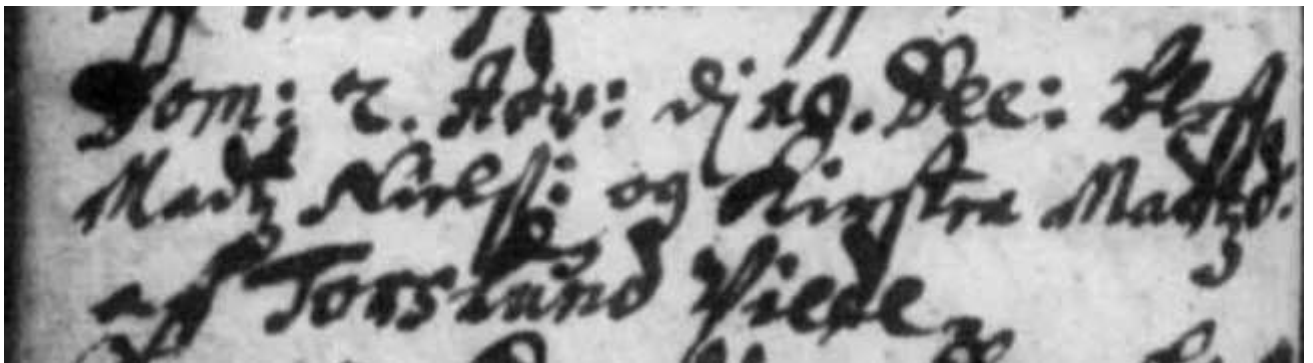 Dom: 2. Adv: dj 10. Dec: bleff
Madtz Nielss: og Kirstra Madtzd.
aff Torslund Viede